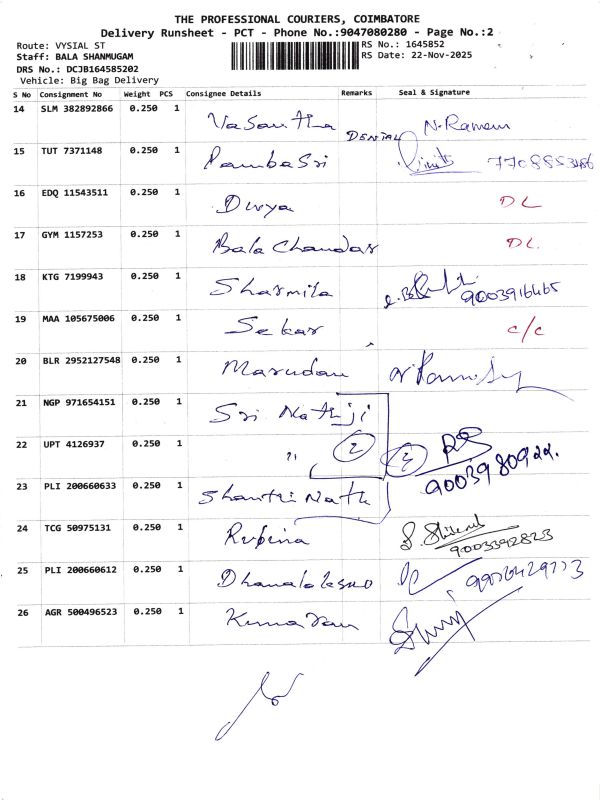 THE PROFESSIONAL COURIERS, COIMBATORE
Delivery Runsheet - PCT - Phone No.:9047080280 - Page No.:2
Route: VYSIAL ST RS No.: 1645852
Staff: BALA SHANMUGAM RS Date: 22-Nov-2025
DRS No.: DCJB164585202
Vehicle: Big Bag Delivery
S No Consignment No Weight PCS Consignee Details Remarks Seal & Signature
14 SLM 382892866 0.250 1 Vasantha DENTAL N. Ramam
15 TUT 7371148 0.250 1 PambaSri 7708853486
16 EDQ 11543511 0.250 1 Divya DL
17 GYM 1157253 0.250 1 Bala Chandar DL.
18 KTG 7199943 0.250 1 Sharmila 9003916465
19 MAA 105675006 0.250 1 Sekar c/c
20 BLR 2952127548 0.250 1 Marudau
21 NGP 971654151 0.250 1 Sri Nathji
22 UPT 4126937 0.250 1 ?1 2 9003980922.
23 PLI 200660633 0.250 1 Shanthi Nath
24 TCG 50975131 0.250 1 Rubina 9003392823
25 PLI 200660612 0.250 1
26 AGR 500496523 0.250 1 Kumaran